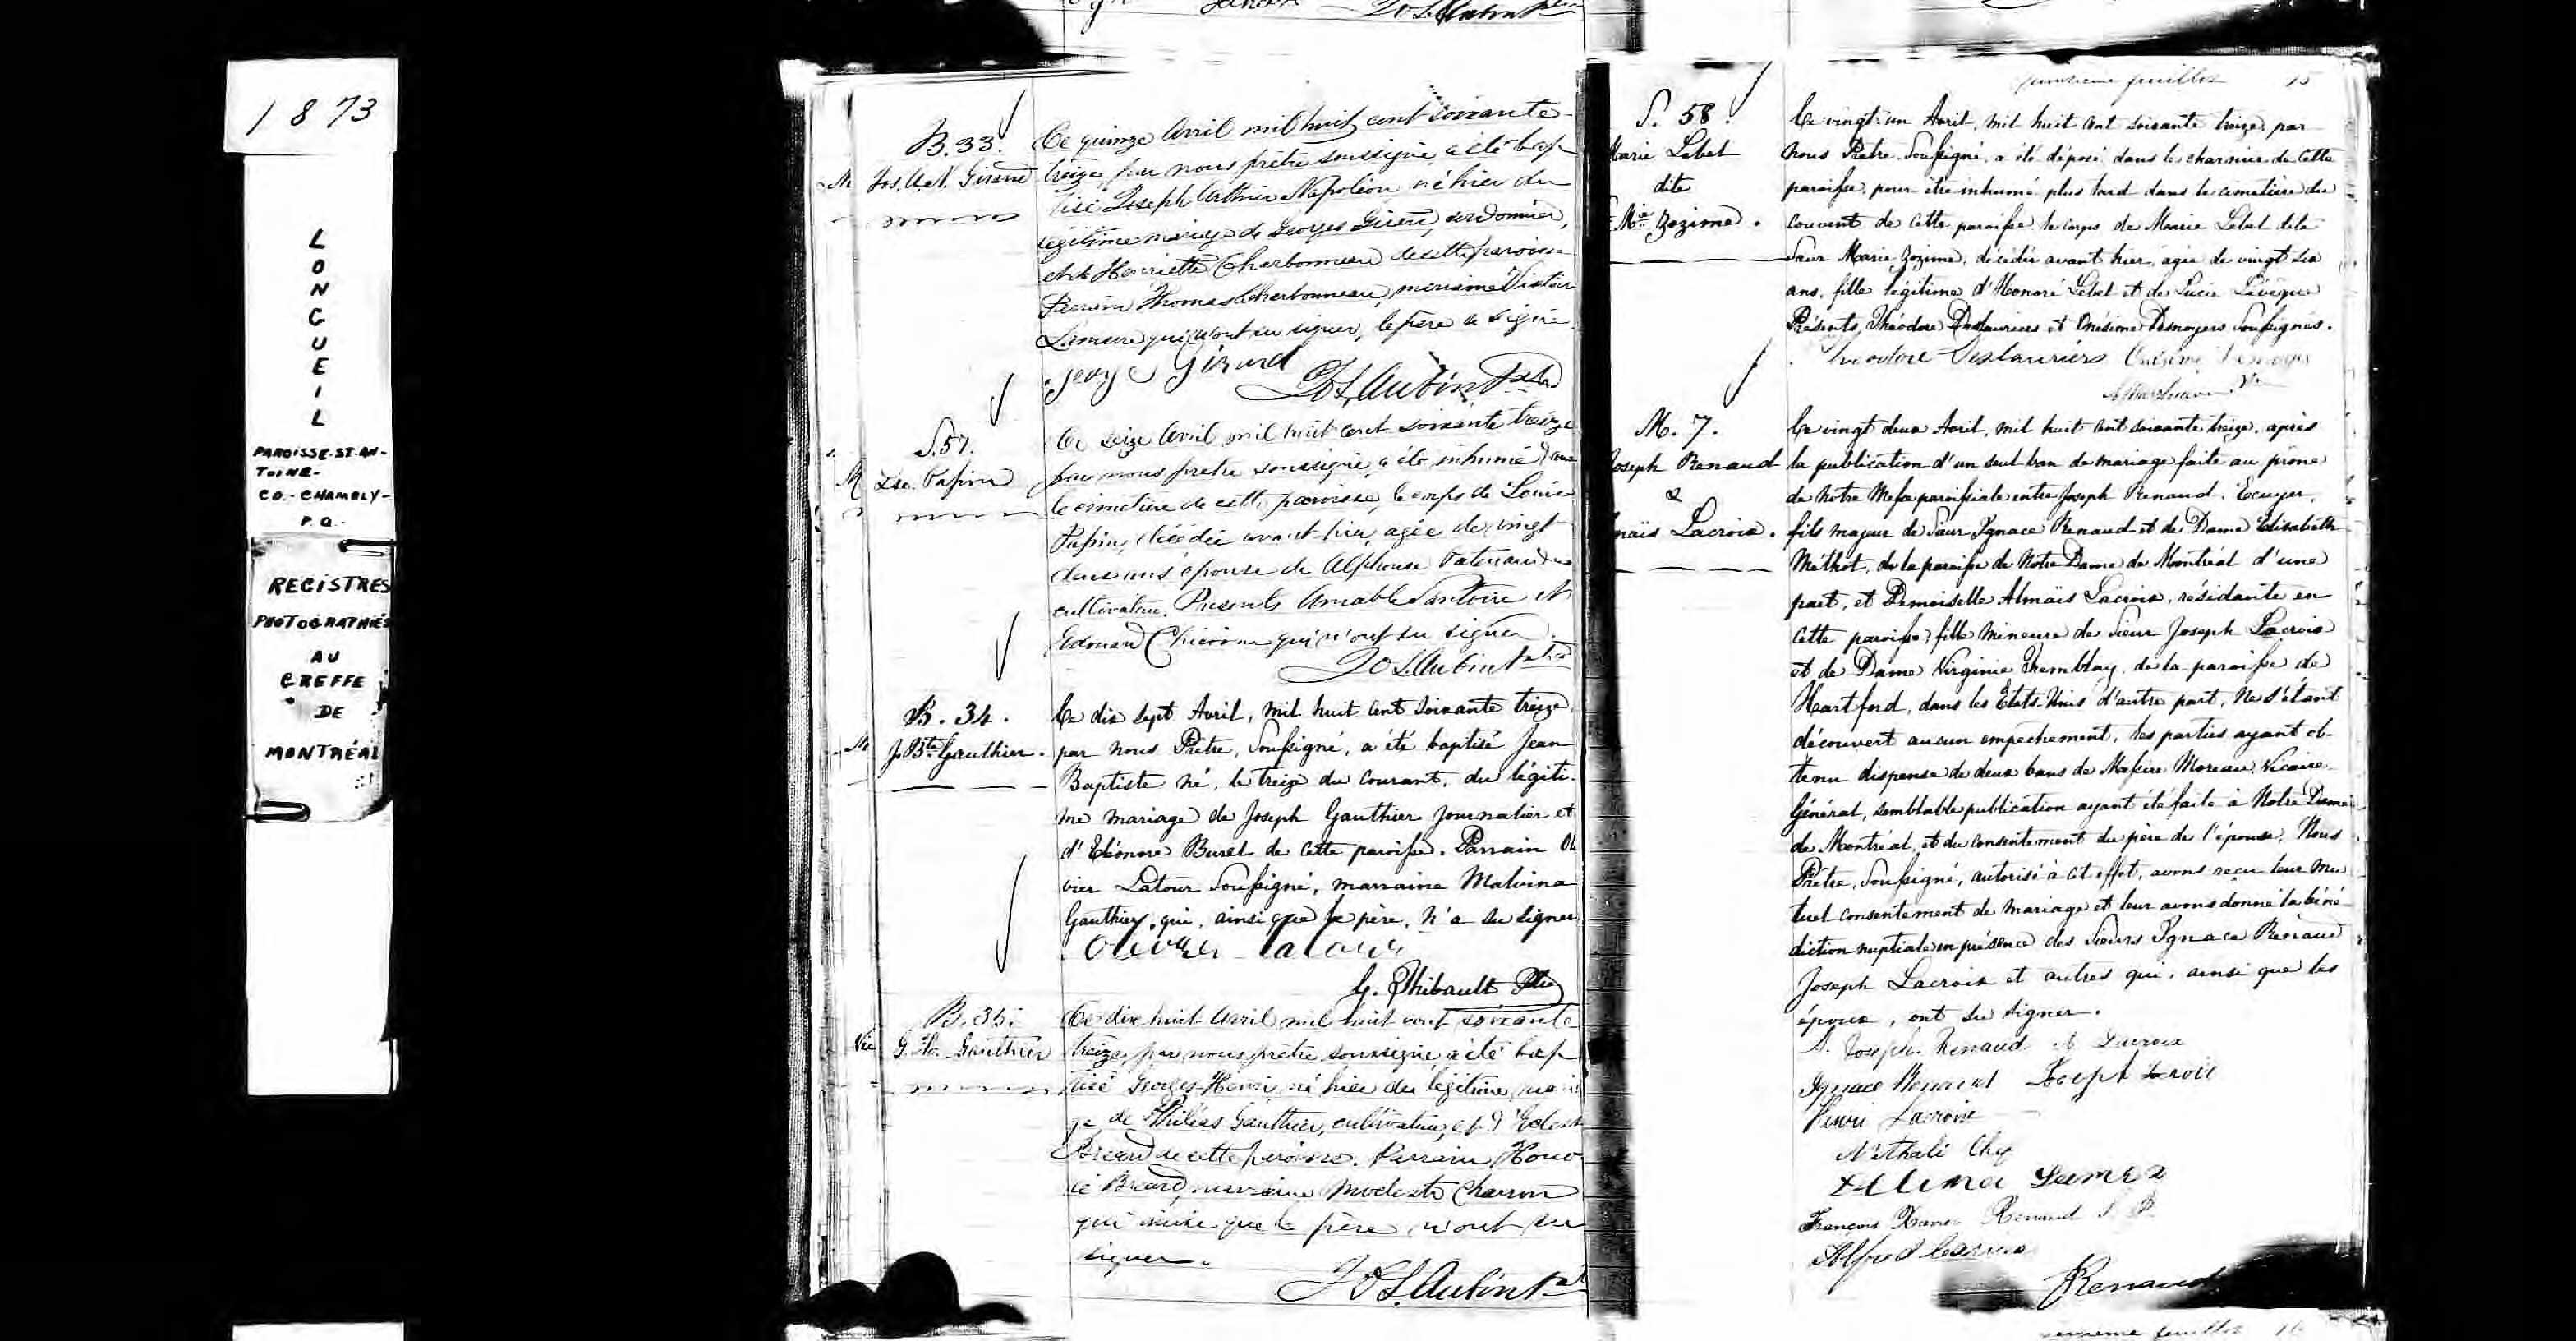 1873
LONGUEIL
PAROISSE-ST-AN-
TOINE-
CO.-CHAMBLY-
P.Q.
REGISTRES
PHOTOGRAPHIÉS
AU
GREFFE
DE
MONTRÉAL
B. 33.
Jos. Girard
Ce quinze Avril mil huit cent soixante
treize, par nous prêtre soussigné, a été bap
tisé Joseph Arthur Napoléon, né hier du
légitime mariage de Georges Girard, cordonnier,
et de Henriette Charbonneau de cette paroisse.
Parrain Thomas Charbonneau, marraine
qui n'ont su signer, le père a signé.
George Girard
St. Aubin Ptre
S. 57.
Papin
Ce seize Avril mil huit cent soixante treize
par nous prêtre soussigné, a été inhumé dans
le cimetière de cette paroisse, le corps de Louise
Papin, décédée avant hier, agée de vingt
deux ans épouse de Alphonse
cultivateur. Présents Amable et
Edouard qui n'ont su signer.
St. Aubin Ptre
B. 34.
J. Bte Gauthier.
Ce dix sept Avril, mil huit cent soixante treize,
par nous Prêtre, soussigné, a été baptisé Jean
Baptiste né, le treize du courant, du légiti-
me mariage de Joseph Gauthier journalier et
d'Eléonore Burel de cette paroisse. Parrain Oli
vier Latour soussigné, marraine Malvina
Gauthier, qui, ainsi que le père, n'a su signer
Olivier Latour
G. Thibault Ptre
B. 35.
G. H. Gauthier
Ce dix huit Avril mil huit cent soixante
treize, par nous prêtre soussigné, a été bap
tisé Georges-Henri, né hier du légitime maria
ge de Philéas Gauthier, cultivateur, et d'
Bricard de cette paroisse. Parrain Hono
ré Bricard, marraine Modeste Charron
qui ainsi que le père n'ont su
signer.
St. Aubin Ptre
quinzième feuillet 15
S. 58.
Marie Lebel
dite
Mie Zozime.
Ce vingt-un Avril, mil huit cent soixante treize, par
nous Prêtre, soussigné, a été déposé dans le charnier de cette
paroisse, pour être inhumé plus tard dans le cimetière du
couvent de cette paroisse le corps de Marie Lebel dite
Sœur Marie Zozime, décédée avant hier, agée de vingt six
ans, fille légitime d'Honoré Lebel et de Lucie Lévêque
Présents, Théodore Deslauriers et Onésime Desnoyers soussignés.
Théodore Deslauriers Onésime Desnoyers
M. 7.
Joseph Renaud
&
maïs Lacroix.
Ce vingt deux Avril, mil huit cent soixante treize, après
la publication d'un seul ban de mariage faite au prône
de notre Messe paroissiale entre Joseph Renaud, Ecuyer,
fils majeur de Sieur Ignace Renaud et de Dame Elisabeth
Méthot, de la paroisse de Notre Dame de Montréal d'une
part, et Demoiselle Almaïs Lacroix, résidante en
cette paroisse, fille mineure de Sieur Joseph Lacroix
et de Dame Virginie Tremblay, de la paroisse de
Hartford, dans les Etats-Unis d'autre part, Ne s'étant
découvert aucun empêchement, les parties ayant ob-
tenu dispense de deux bans de Messire Moreau, Vicaire
Général, semblable publication ayant été faite à Notre Dame
de Montréal, et du consentement du père de l'épouse, Nous
Prêtre, soussigné, autorisé à cet effet, avons reçu leur mu
tuel consentement de mariage et leur avons donné la béné
diction nuptiale en présence des Sieurs Ignace Renaud
Joseph Lacroix et autres qui, ainsi que les
époux, ont su signer.
Joseph Renaud A Lacroix
Ignace Renaud Joseph Lacroix
Henri Lacroix
François Xavier Renaud
Alfred
Renaud